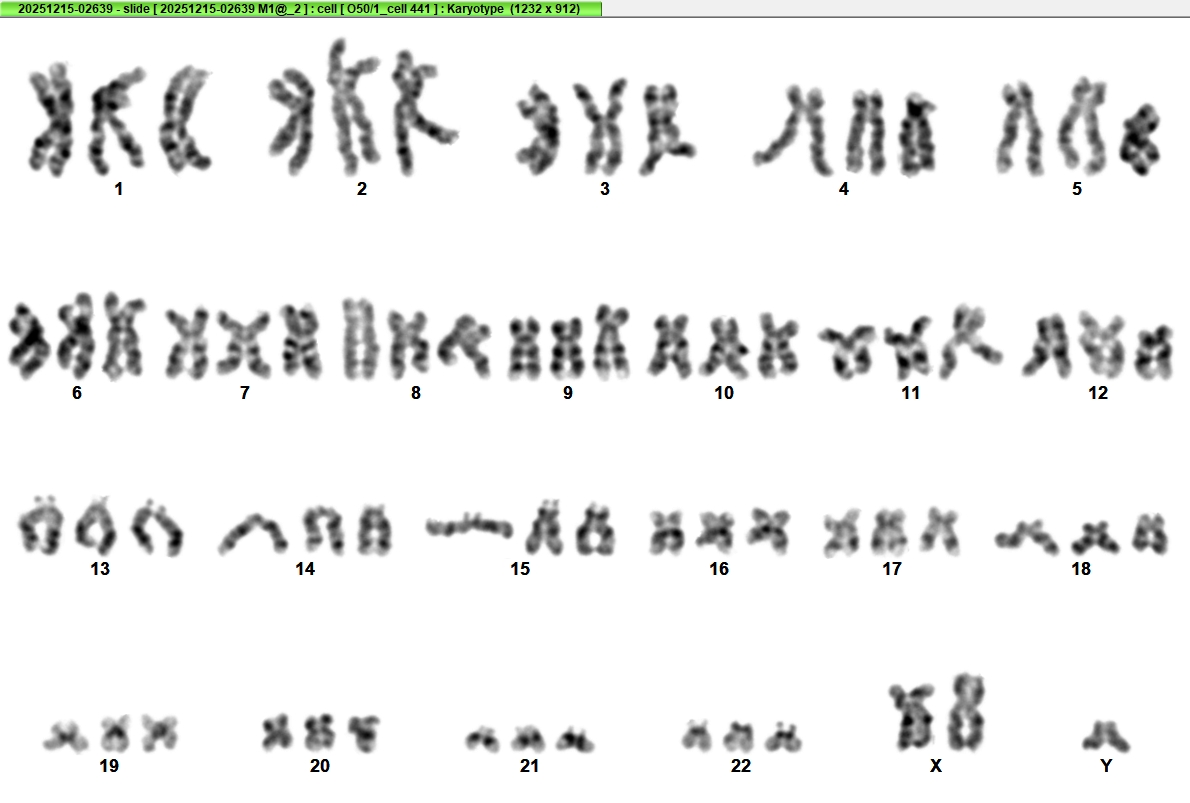 20251215-02639 - slide [ 20251215-02639 M1@_2 ] : cell [ O50/1_cell 441 ] : Karyotype (1232 x 912)
1 2 3 4 5
6 7 8 9 10 11 12
13 14 15 16 17 18
19 20 21 22 X Y